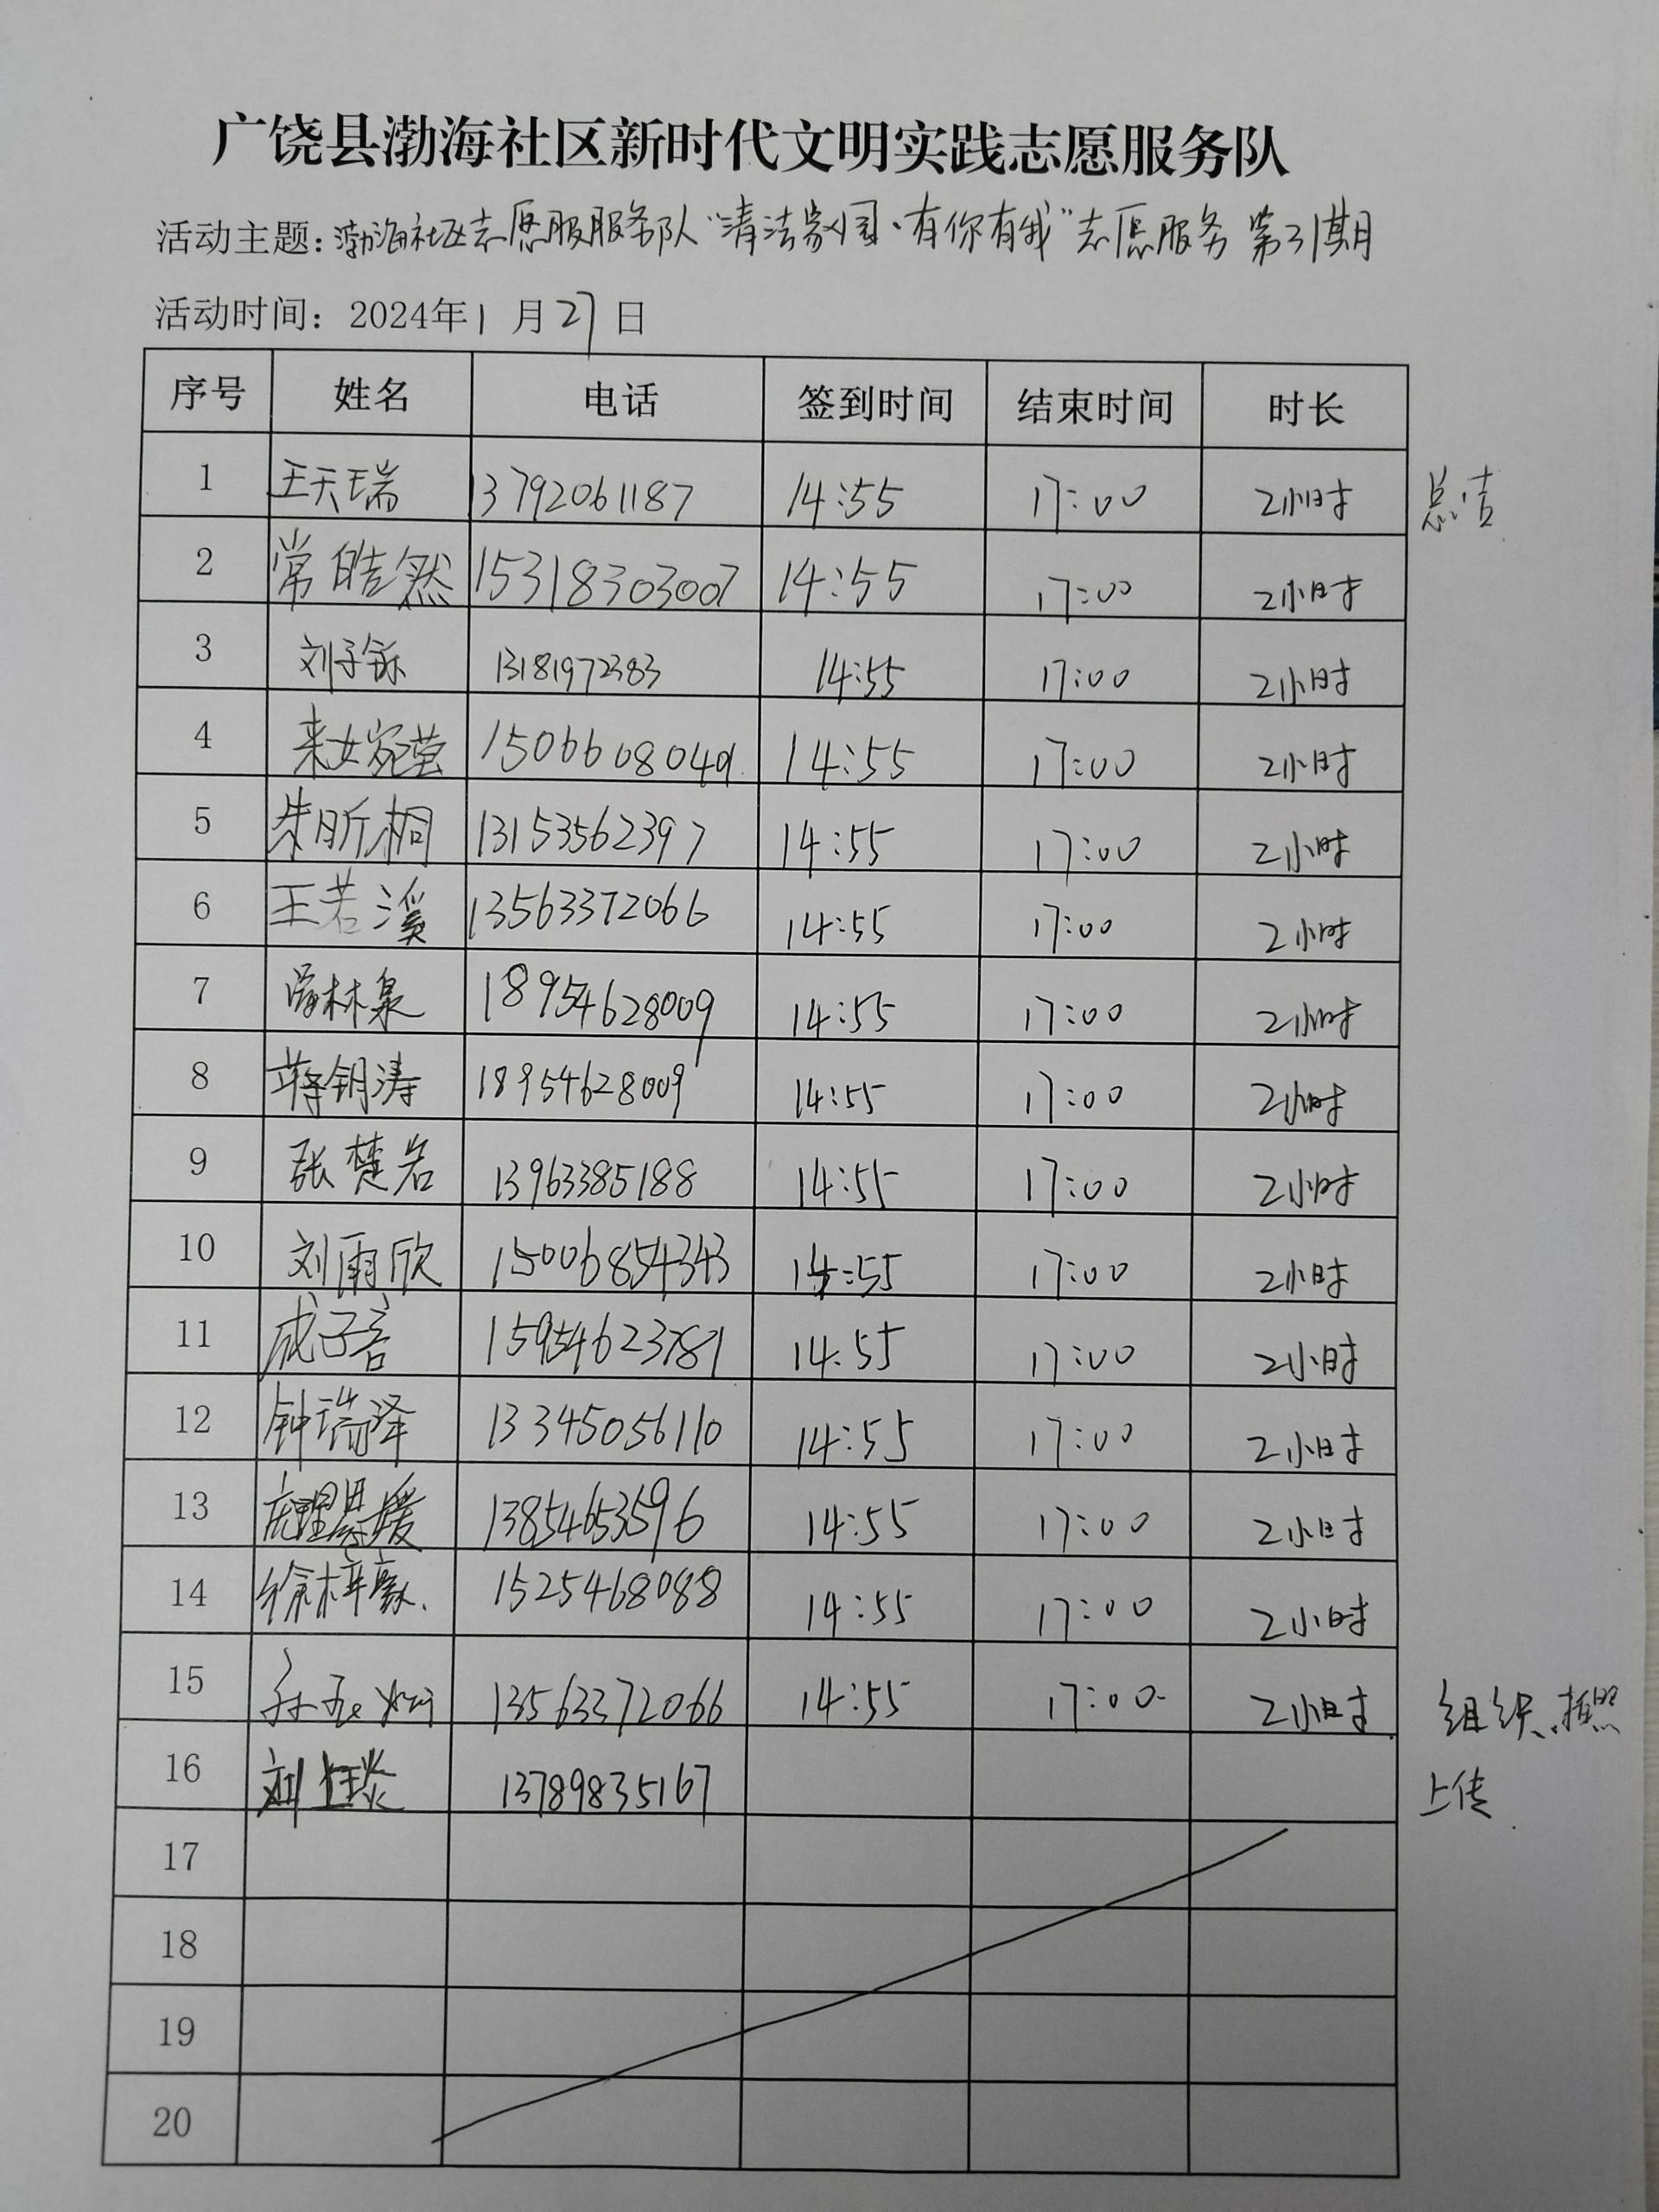 广饶县渤海社区新时代文明实践志愿服务队
活动主题:渤海社区志愿服服务队"清洁家园、有你有我"志愿服务 第31期
活动时间:2024年1月27日
序号 姓名 电话 签到时间 结束时间 时长
1 王天瑞 13792061187 14:55 17:00 2小时 总结
2 常皓然 15318303007 14:55 17:00 2小时
3 刘子铄 13181972383 14:55 17:00 2小时
4 1506608049 14:55 17:00 2小时
5 朱昕桐 13153562397 14:55 17:00 2小时
6 王若溪 13563372066 14:55 17:00 2小时
7 林泉 18954628009 14:55 17:00 2小时
8 蒋钥涛 18954628009 14:55 17:00 2小时
9 张楚若 13963385188 14:55 17:00 2小时
10 刘雨欣 15006854343 14:55 17:00 2小时
11 成子言 15954623787 14:55 17:00 2小时
12 钟瑞泽 13345056110 14:55 17:00 2小时
13 13854653596 14:55 17:00 2小时
14 徐梓豪. 15254468088 14:55 17:00 2小时
15 13563372066 14:55 17:00 2小时 组织.拍照
16 13789835167 上传
17
18
19
20